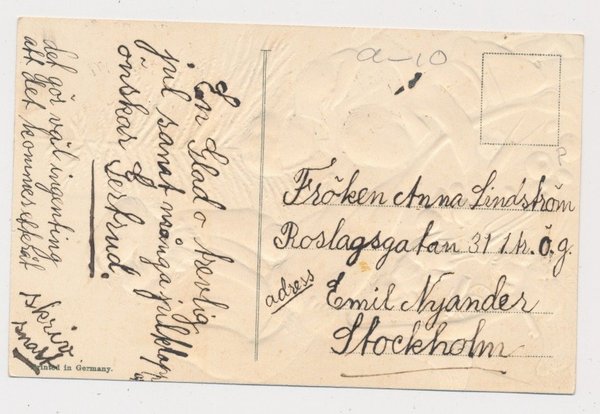 a-10
En Glad o trevlig
jul samt många julklap
önskar Gertrud.
det gör väl ingenting
att det kommer efteråt
skriv
snart
Fröken Anna Lindström
Roslagsgatan 31 1 tr. ö. g.
adress
Emil Nyander
Stockholm
Printed in Germany.